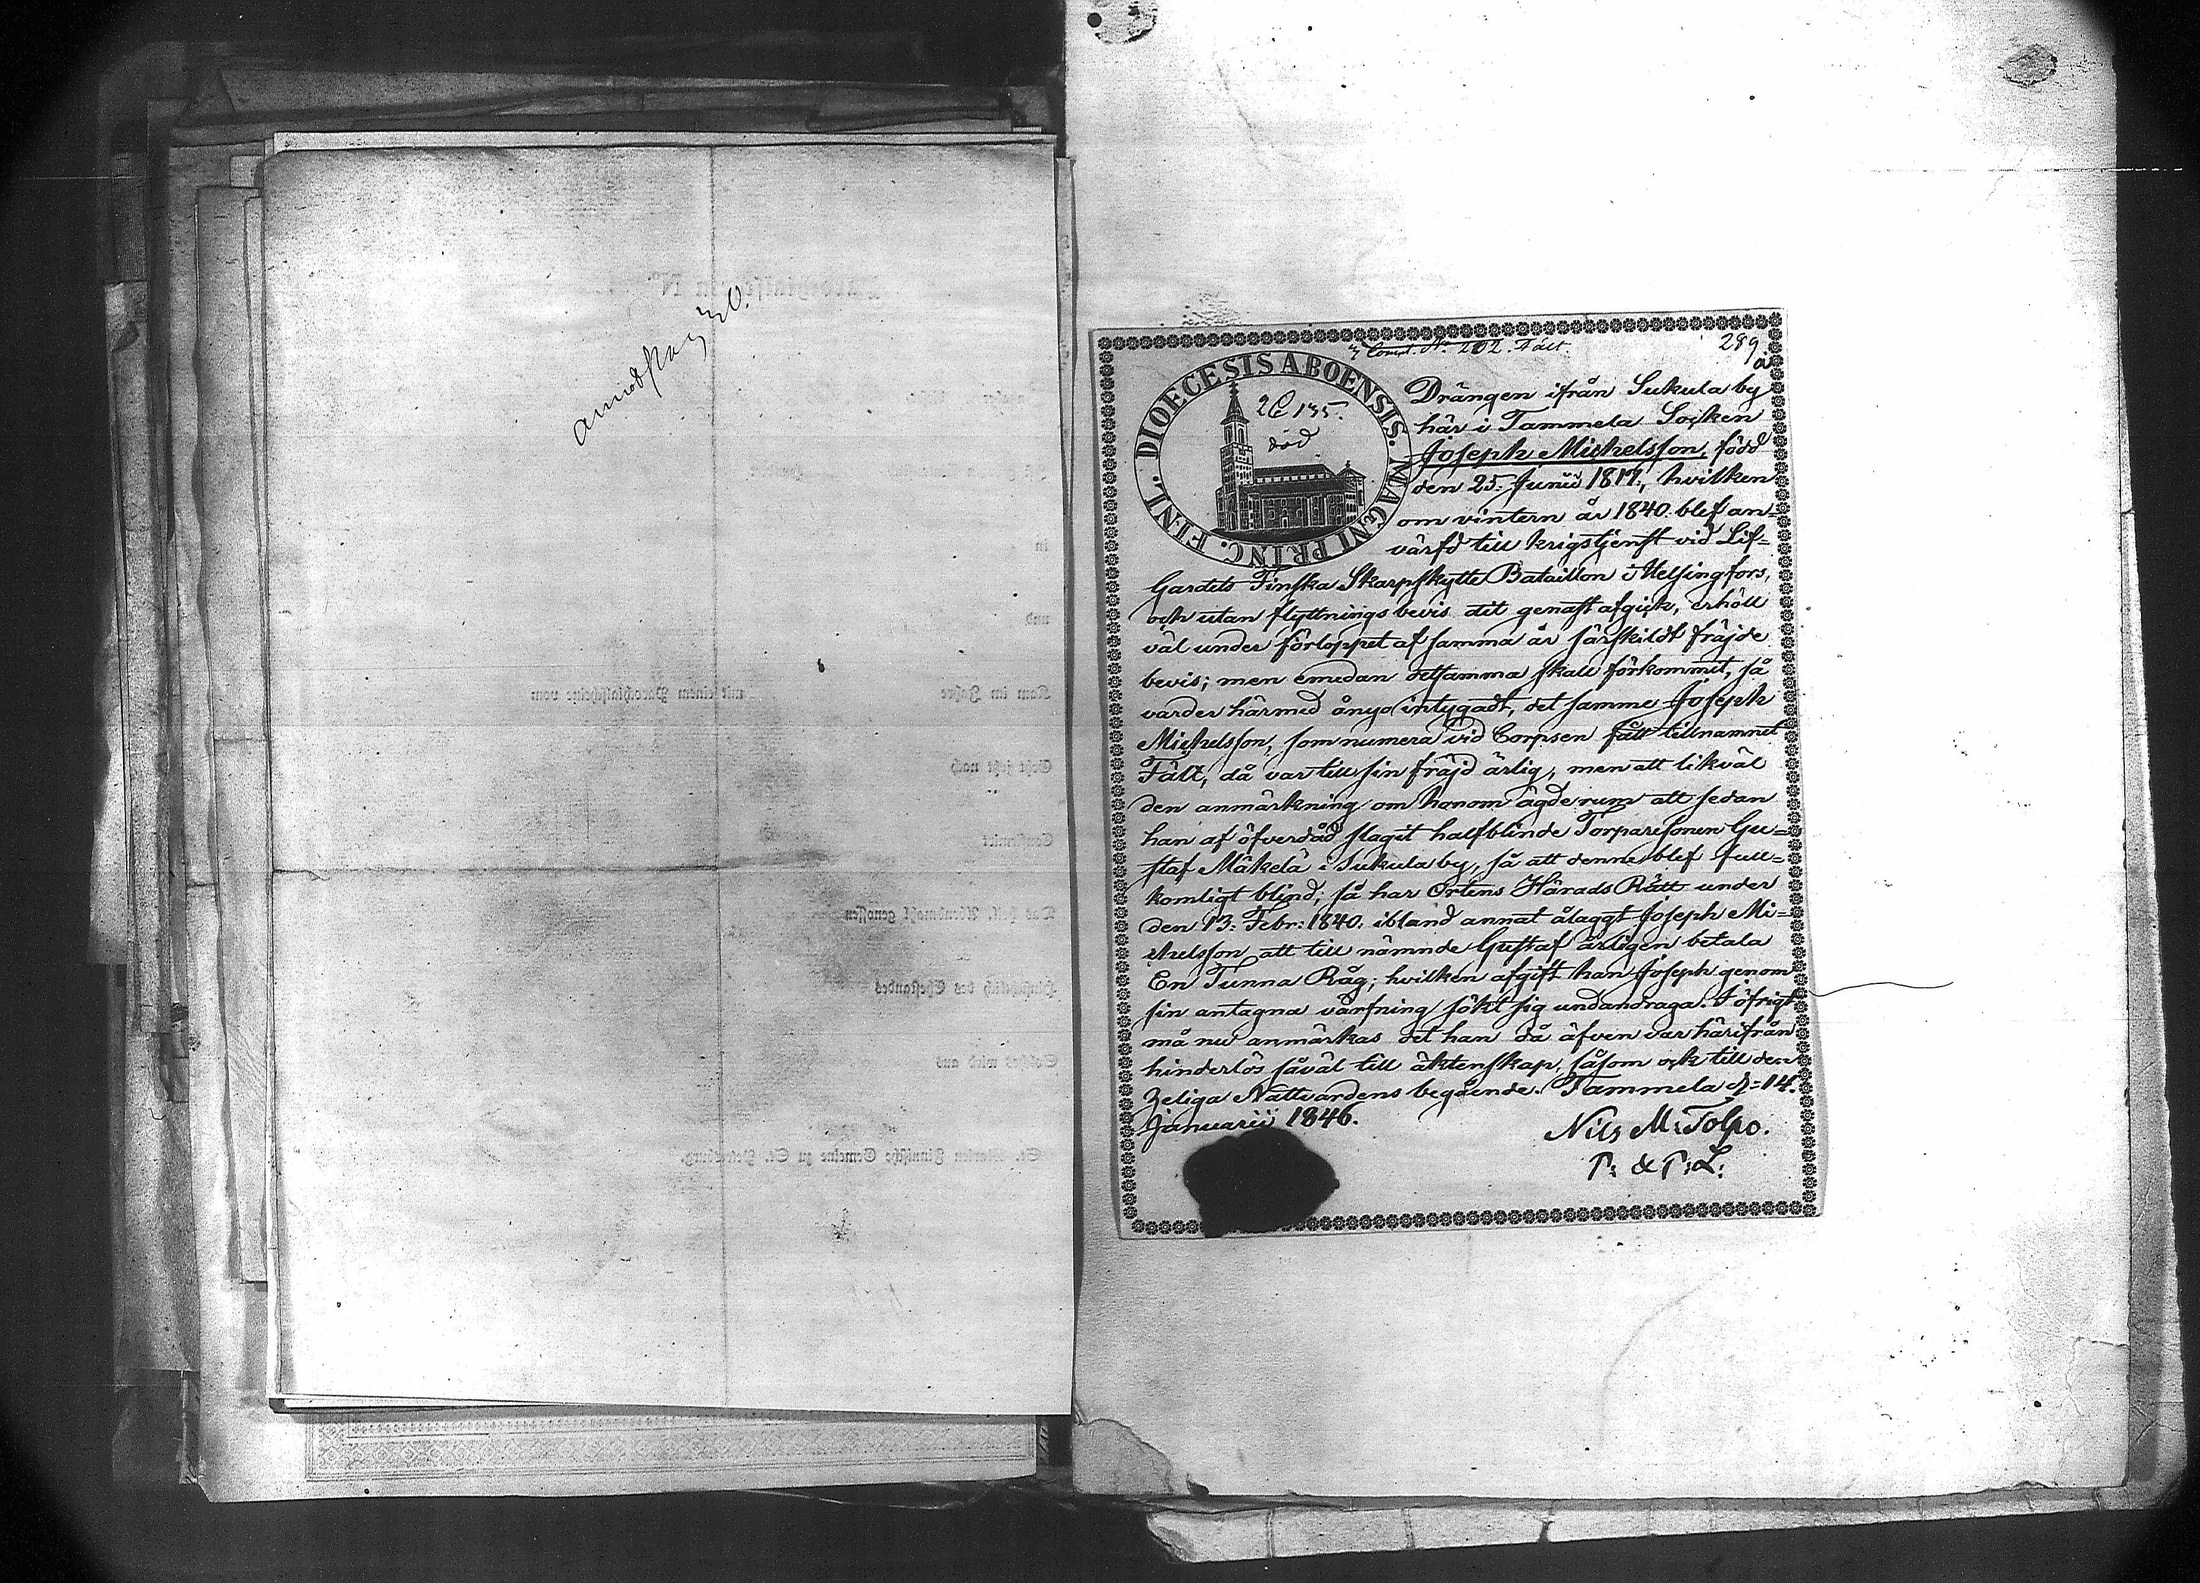 3 Compt. No 202. Fält.
289
DIOECESIS ABOENSIS. MAGNI PRINC. FINL.
2C 135.
död
Drängen ifrån Sukula by
här i Tammela Socken
Joseph Michelsson, född
den 25. Junii 1817, hvilken
om vintern år 1840. blef an=
värfd till krigstjenst vid Lif=
Gardets Finska Skarpskytte Bataillon i Helsingfors,
och utan flyttningsbevis dit genast afgick, erhöll
väl under förloppet af samma år särskildt fräjde
bevis; men emedan detsamma skall förkommit, så
varder härmed ånyo intygadt, det samme Joseph
Michelsson, som numera vid Corpsen fått tillnamnet
Fält, då var till sin fräjd ärlig, men att likväl
den anmärkning om honom ägde rum att sedan
han af öfverdåd slagit halfblinde Torparesonen Gu=
staf Mäkelä i Sukula by, så att denne blef full=
komligt blind; så har Ortens Härads Rätt under
den 13. Febr: 1840. ibland annat ålaggt Joseph Mi=
chelsson att till nämnde Gustaf årligen betala
En Tunna Råg; hvilken afgift han Joseph genom
sin antagna värfning sökt sig undandraga. I öfrigt
må nu anmärkas det han då äfven var härifrån
hinderlös såväl till äktenskap, såsom ock till den
Heliga Nattvardens begående. Tammela d: 14.
Januarii 1846.
Nils M. Tolpo.
P: & P: L:
Kam im Jahre mit seinem Parochialscheine vom
Geht jetzt nach
Confirmirt
Das heil. Abendmahl genossen
Hinsichtlich des Ehestandes
Solches wird aus
St. Marien Finnische Gemeine zu St. Petersburg.